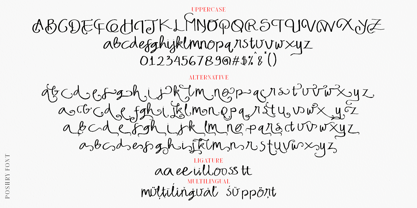 UPPERCASE
ABCDEFGHIJKLMNOPQRSTUVWXYZ
abcdefghijklmnopqrstuvwxyz
0123456789@#$%&^*()
ALTERNATIVE
abcdefghijklmnopqrstuvwxyz
abcdefghijklmnopqrstuvwxyz
abcdefghijklmnopqrstuvwxyz
abcdefghijklmnopqrstuvwxyz
LIGATURE
aa ee ii ll oo ss tt
MULTILINGUAL
multilingual support
POSHBY FONT